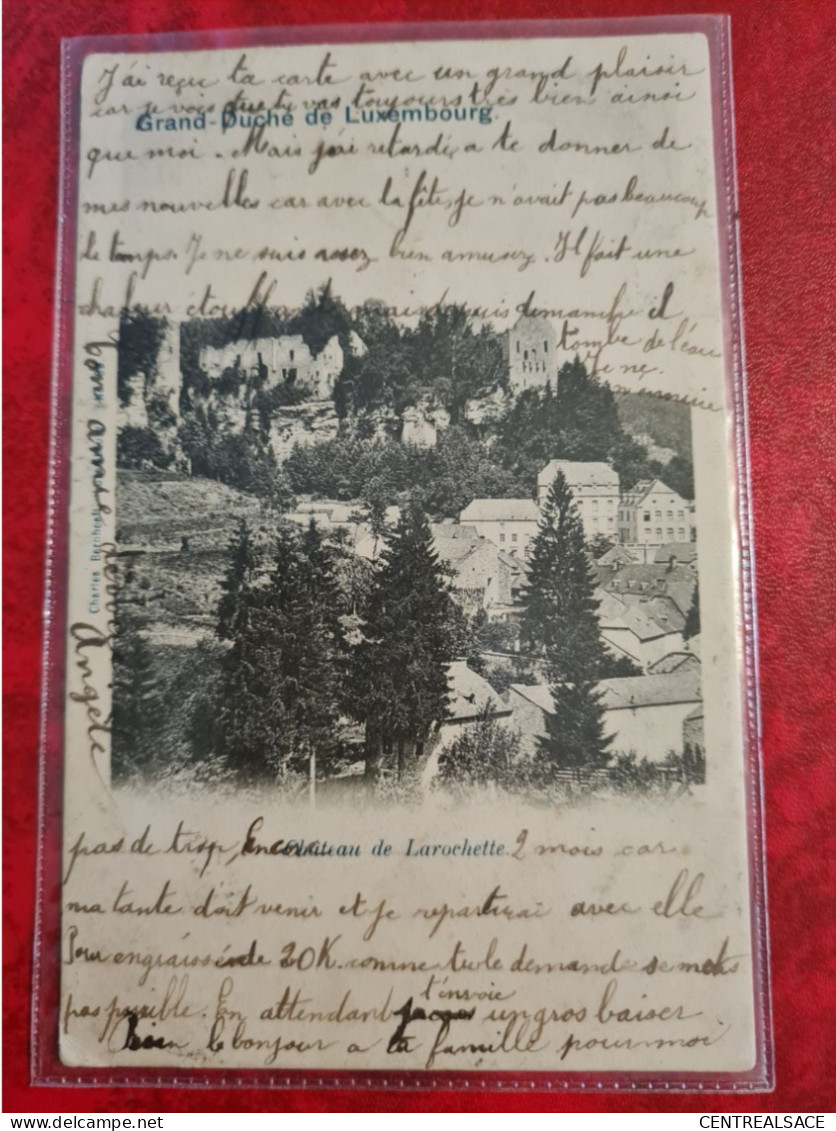 J'ai reçu ta carte avec un grand plaisir
car je vois que tu vas toujours très bien ainsi
Grand-Duché de Luxembourg
que moi. Mais j'ai retardée a te donner de
mes nouvelles car avec la fête, je n'avait pas beaucoup
le temps. Je ne suis assez bien amusez. Il fait une
chaleur étouffante mais depuis dimanche il
tombe de l'eau
Je ne
m'ennuie
pas de trop, Encore 2 mois car
Château de Larochette.
ma tante doit venir et je repartirai avec elle
Pour engraissée de 20K. comme tu le demande se n'est
pas possible. En attendant je t'envoie un gros baiser
bien le bonjour a ta famille pour moi
ton amie
Angèle
Charles Bernhoeft
CENTREALSACE